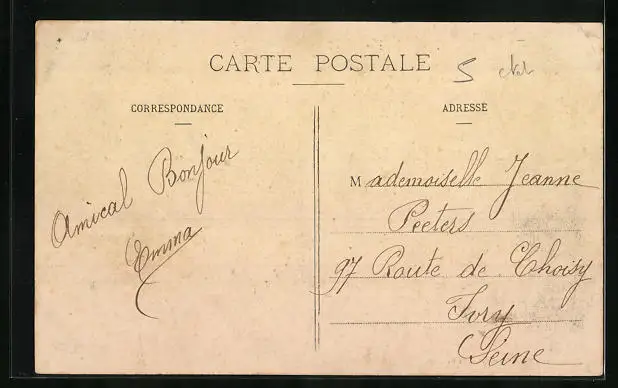 CARTE POSTALE
5
CORRESPONDANCE
Amical Bonjour
Emma
ADRESSE
Mademoiselle Jeanne
Peeters
97 Route de Choisy
Ivry
Seine